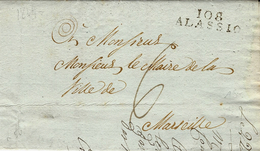 108
ALASSIO
A Monsieur
Monsieur le Maire de la
Ville de
Marseille